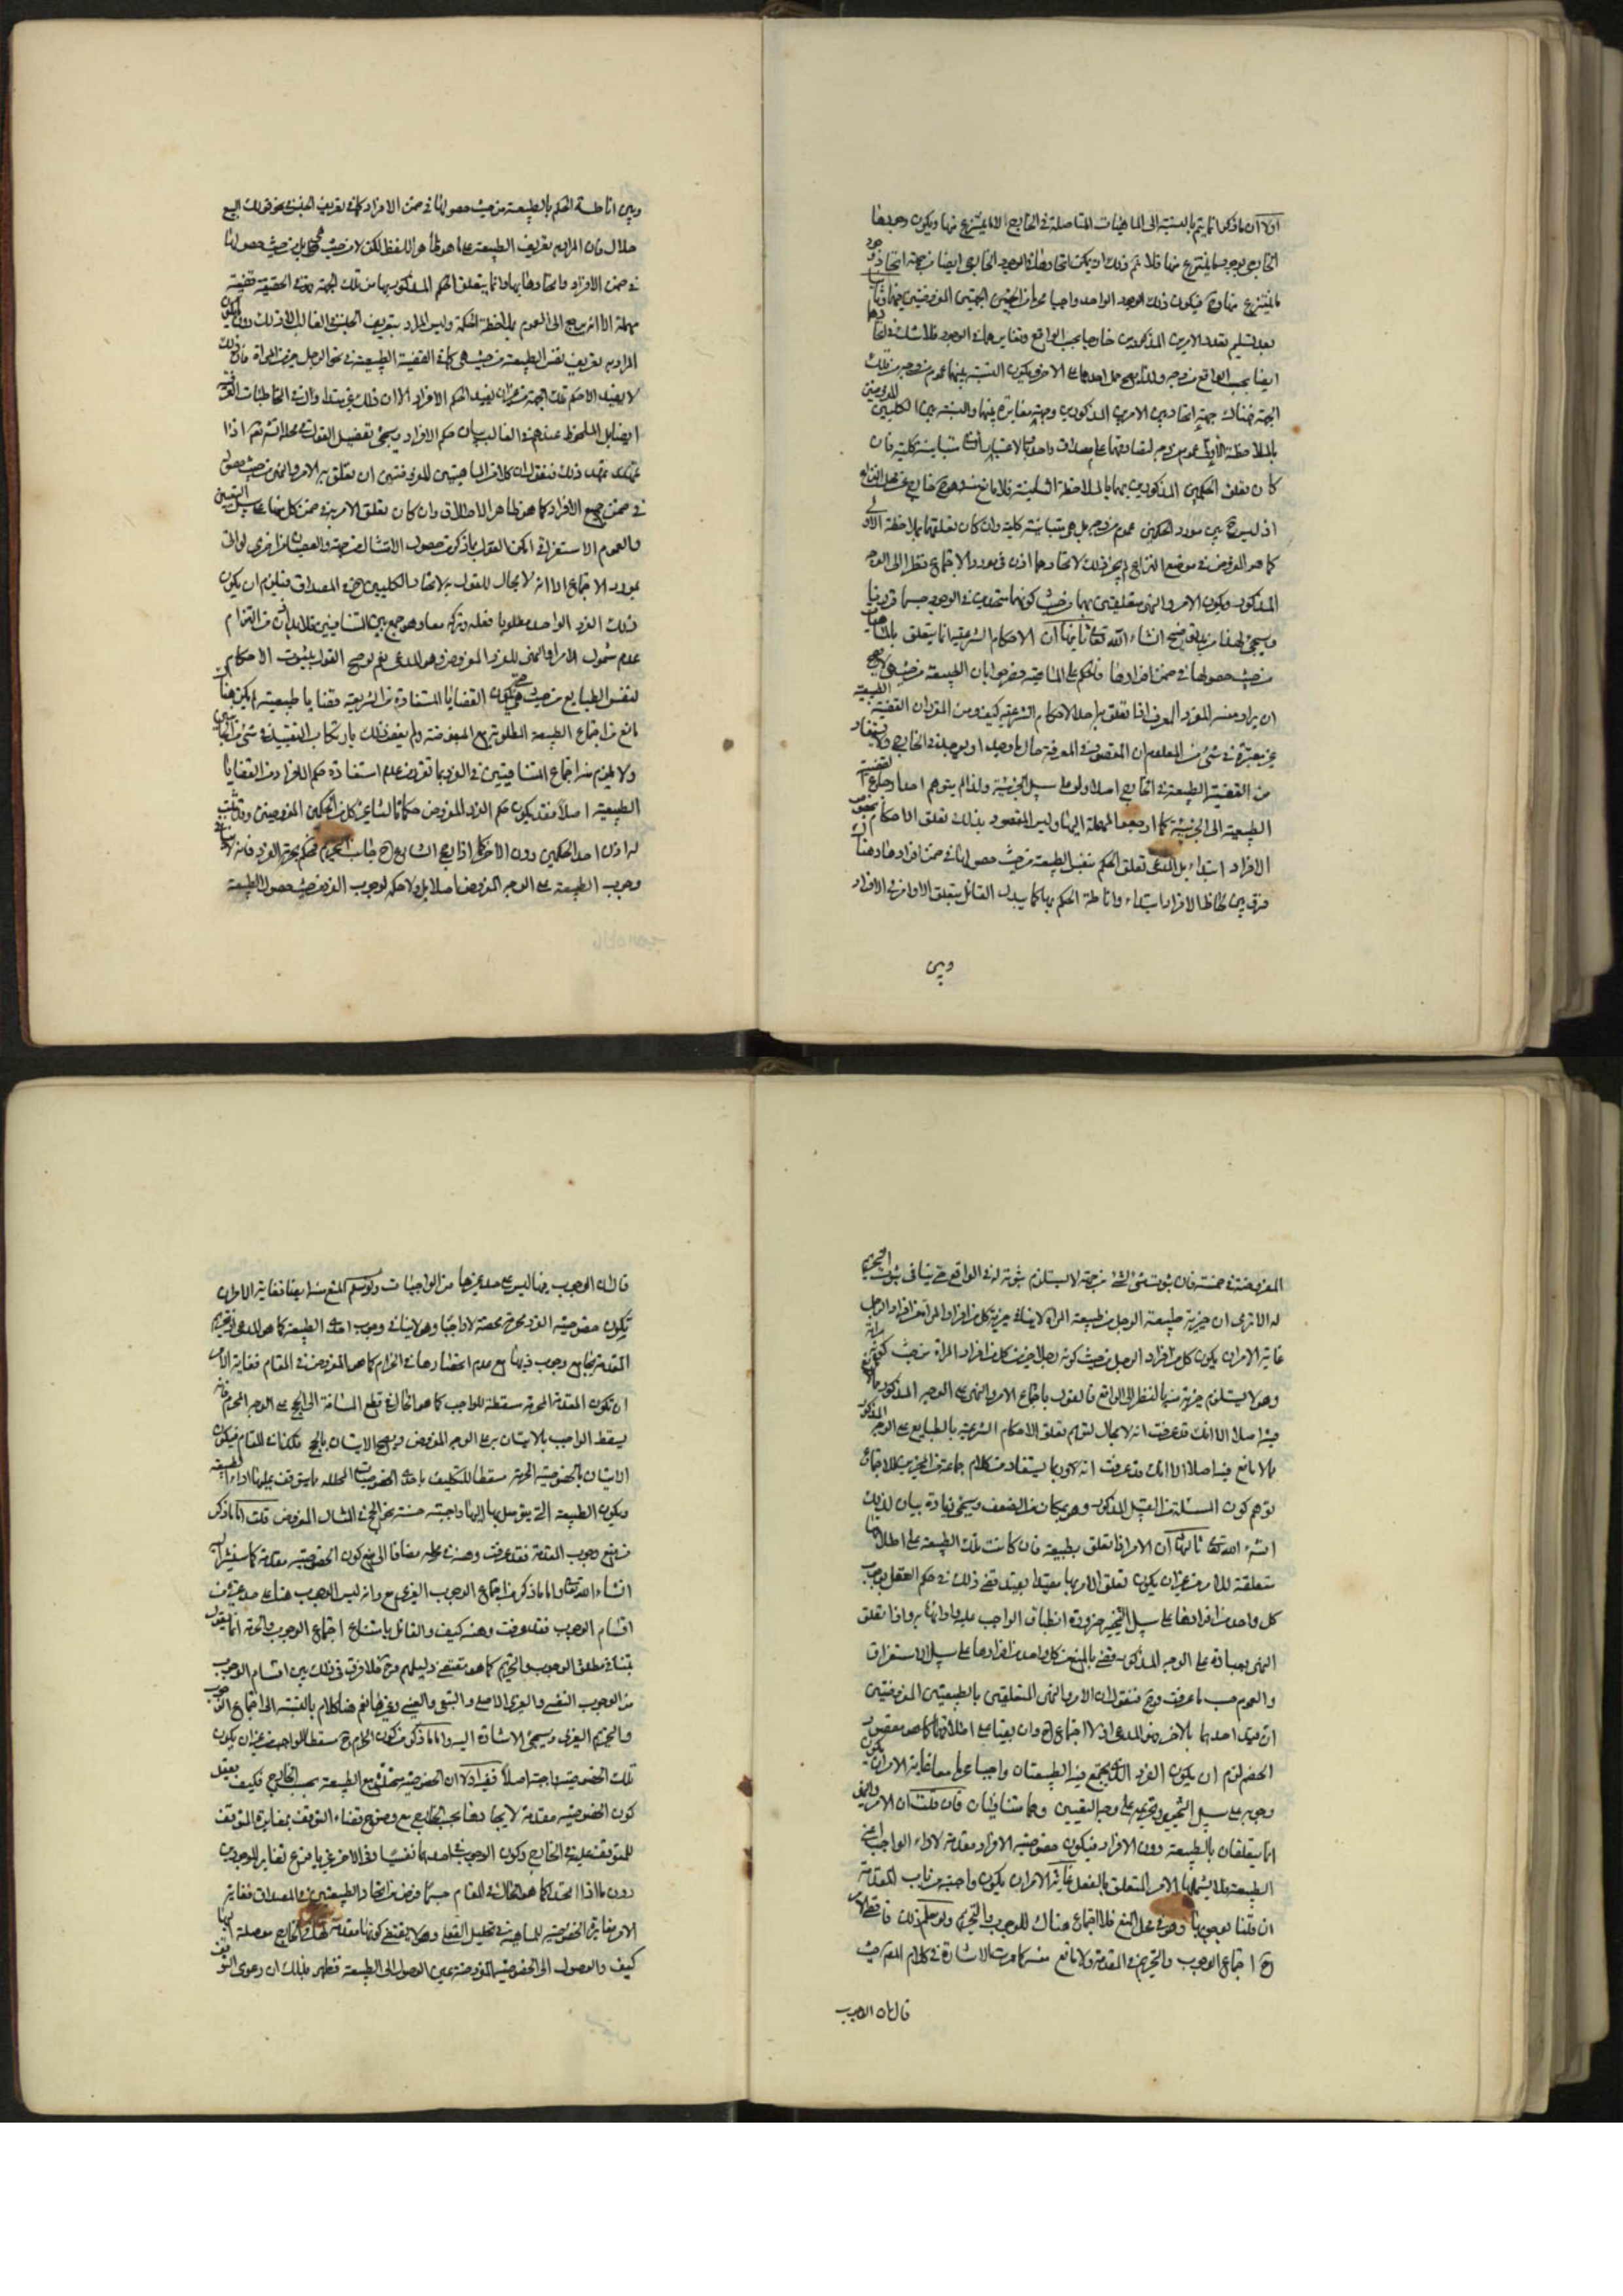 اولا ان ما ذكر انما يتم بالنسبة الى الماهيات المتاصلة في الخارج لا ما ينتزع منها ويكون وجودها
الخارجي بوجود ما ينتزع منها فلا يتم ذلك اذ يمكن اتحادهما في الوجود الخارجي ايضا من جهة اتحاد
ما ينتزع منها فيكون ذلك الوجود الواحد واجبا محرما من الجهتين المفروضتين وثانيا
بعد تسليم تعدد الامرين المذكورين خارجا بحسب الواقع وتغايرهما في الوجود فلا شك في اتحادهما
ايضا بحسب الواقع من وجه ولذا يصح حمل احدهما على الاخر ويكون النسبة بينهما عموم من وجه من تلك
الجهة فهناك جهة اتحاد بين الامرين المذكورين وجهة مغايرة بينهما والنسبة بين الكليين المفروضين
بالملاحظة الاولى عموم من وجه لتصادقهما على مصداق واحد وبالاعتبار الثاني تباينة كلية فان
كان تعلق الحكمين المذكورين بهما بالملاحظة الثانية فلا مانع منه وهو خارج عن محل النزاع
اذ ليس ح بين مورد الحكمين عموم من وجه بل هي متباينة كلية وان كان تعلقهما بملاحظة الاولى
كما هو المفروض في موضع النزاع لم يجز ذلك لاتحادهما اذن في مورد الاجتماع نظرا الى الوجه
المذكور ويكون الامر والنهي متعلقين بهما من حيث كونهما متحدين في الوجود حسبما قررنا
وسيجئ لهذا مزيد توضيح انشاء الله تعالى ثانيها ان الاحكام الشرعية انما يتعلق بالماهيات
من حيث حصولها في ضمن افرادها فالحكم على الماهية
ان يراد منه المفرد المعرف اذا تعلق به احد الاحكام الشرعية كيف ومن المقرر ان القضية الطبيعية
غير معتبرة في شئ من العلوم
من القضية الطبيعية في الخارج اصلا ولو على سبيل الجزئية ولذا لم يتوهم احد ارجاع القضية
الطبيعية الى الجزئية كما ارجعوا المهملة اليها وليس المقصود بذلك تعلق الاحكام بخصوص
الافراد ابتداء بل المدعى تعلق الحكم بنفس الطبيعة من حيث حصولها في ضمن افرادها
فرق بين لحاظ الافراد ابتداء واناطة الحكم بها كما يقول القائل بتعلق الاوامر في الافراد
وبين
وبين اناطة الحكم بالطبيعة من حيث حصولها في ضمن الافراد كما في تعريف الجنس في نحو قولك البيع
حلال فان المراد به تعريف الطبيعة على ما هو ظاهر اللفظ لكن لا من حيث هي بل من حيث حصولها
في ضمن الافراد واتحادها بها وانما يتعلق الحكم المذكور بها من تلك الجهة فهو في الحقيقة قضية
مهملة الا انه يرجع الى العموم بملاحظة الحكمة وليس المراد بتعريف الجنس في الغالب الا ذلك
المراد به تعريف نفس الطبيعة من حيث هي كما في القضية الطبيعية في نحو الرجل خير من المرأة
لا يفيد الا حكم تلك الجهة من غير ان يفيد الحكم الافراد الا ان ذلك غير متداول في المخاطبات العرفية
ايضا بل الملحوظ عندهم في الغالب بيان حكم الافراد وسيجئ تفصيل القول في محله انشاء الله تعالى اذا
تمهد ذلك فنقول ان كلا من الماهيتين المفروضتين ان تعلق به الامر والنهي من حيث حصولها
في ضمن جميع الافراد كما هو ظاهر الاطلاق وان كان تعلق الامر به في ضمن كل منها على سبيل التخيير
والعموم الاستغراقي امكن القول بما ذكر من حصول الامتثال من جهة والعصيان من اخرى لو اتى
بمورد الاجتماع الا انه لا مجال للقول به لاتحاد الكليين في المصداق فيلزم ان يكون
ذلك الفرد الواحد مطلوبا فعله وتركه معا وهو جمع بين المتنافيين فلا بد اذن من التزام
عدم شمول الامر او النهي للفرد المفروض وهو المدعى نعم لو صح القول بثبوت الاحكام
لنفس الطبايع من حيث هي وتكون القضايا المستفادة من الشريعة قضايا طبيعية لم يكن هناك
مانع من اجتماع الطبيعة المطلوبة مع المبغوضة ولم يفتقر ذلك بارتكاب التقييد في شئ من الجانبين
ولا يلزم منه اجتماع المتنافيين في الفرد لما تقرر من عدم استفادة حكم الافراد من القضايا
الطبيعية اصلا فقد يكون حكم الفرد المفروض حكما ثالثا غير كل من الحكمين المفروضين وقد يثبت
له اذن احد الحكمين دون الاخر كما اذا رجح الشارع ح جانب التحريم فحكم بحرمة الفرد فانه لا ينافي
وجوب الطبيعة على الوجه المفروض اصلا بل ولا حكمه بوجوب الفرد من حيث حصول الطبيعة
المفروضة في ضمنه فان ثبوت شئ لشئ من جهة لا يستلزم ثبوته له في الواقع حتى ينافي ثبوت التحريم
له الا ترى ان خيرية طبيعة الرجل من طبيعة المرأة لا ينافي خيرية كل من افراد المرأة من افراد الرجل
غاية الامر ان يكون كل من افراد الرجل من حيث كونه رجلا خيرا من كل من افراد المرأة من حيث كونها مرأة
وهو لا يستلزم خيرية منها بالنظر الى الواقع فالقول باجتماع الامر والنهي على الوجه المذكور مما لا مانع
فيه اصلا الا انك قد عرفت انه لا مجال لتوهم تعلق الاحكام الشرعية بالطبايع على الوجه المذكور
مما لا مانع فيه اصلا الا انك قد عرفت انه
توهم كون المسئلة من القبيل المذكور وهو بمكان من الضعف وسيجئ زيادة بيان لذلك
انشاء الله تعالى ثالثها ان الامر اذا تعلق بطبيعة فان كانت تلك الطبيعة على اطلاقها
متعلقة للامر من غير ان يكون تعلق الامر بها مقيدا بقيد قضى ذلك في حكم العقل بوجوب
كل واحد من افرادها على سبيل التخيير ضرورة انطباق الواجب عليه وادائها به واذا تعلق
النهي بعبادة على الوجه المذكور قضى بالمنع من كل واحد من افرادها على سبيل الاستغراق
والعموم حسب ما عرفت وح فنقول ان الامر والنهي المتعلقين بالطبيعتين المفروضتين
ان قيد احدهما بالاخر فهو المدعى اذ لا اجتماع ح وان بقيا على اطلاقهما كما هو مقصود
الخصم لزم ان يكون الفرد الذي يجتمع فيه الطبيعتان واجبا محرما معا غاية الامر ان يكون
وجوبه على سبيل التخيير وتحريمه على وجه التعيين وهما متنافيان فان قلت ان الامر والنهي
انما يتعلقان بالطبيعة دون الافراد فيكون خصوصية الافراد مقدمة لاداء الواجب اعني
الطبيعة فلا يشملها الامر المتعلق بالفعل غاية الامر ان يكون واجبة من باب المقدمة
ان قلنا بوجوبها وهو في محل المنع فلا اجتماع هناك للوجوب والتحريم ولو سلم ذلك فاقصاه
ح اجتماع الوجوب والتحريم في المقدمة ولا مانع منه كما مرت الاشارة في كلام المص حيث
قال ان الوجوب
قال ان الوجوب فيها ليس على حد غيرها من الواجبات ولو سلم المنع منه ايضا فغاية الامر ان
يكون خصوصية الفرد محرمة محضة لا واجبا وهو لا ينافي وجوب اصل الطبيعة كما هو المدعى اذ تحريم
المقدمة يجامع وجوب ذيها مع عدم انحصارها في الحرام كما هو المفروض في المقام فغاية الامر
ان تكون المقدمة المحرمة مسقطة للواجب كما هو الحال في قطع المسافة الى الحج على الوجه المحرم فانه
يسقط الواجب بالاتيان به على الوجه المفروض ويصح الاتيان بالحج فكذا في المقام فيكون
الاتيان بالخصوصية المحرمة مسقطا للتكليف باحدى الخصوصيات المحللة مما يتوقف عليها اداء الطبيعة
ويكون الطبيعة التي يتوصل بها اليها واجبة حسنة نحو الحج في المثال المفروض قلت اما ما ذكر
من منع وجوب المقدمة فقد عرفت وهنه في محله مضافا الى منع كون الخصوصية مقدمة كما سنشير اليه
انشاء الله تعالى واما ما ذكر من اجتماع الوجوب الغيري مع وانه ليس الوجوب هنا على حد غيره من
اقسام الوجوب فقد عرفت وهنه كيف والقائل بامتناع اجتماع الوجوب والحرمة انما يقول
بتنافي مطلق الوجوب والتحريم كما هو مقتضى دليلهم وح فلا فرق في ذلك بين اقسام الوجوب
من الوجوب النفسي والغيري والاصلي والتبعي والعيني وغيرها نعم هنا كلام بالنسبة الى اجتماع الوجوب
والتحريم الغيري وسيجئ الاشارة اليه واما ما ذكر من كون الحرام ح مسقطا للواجب من غير ان يكون
تلك الخصوصية واجبة اصلا ففيه اولا ان الخصوصية متحدة مع الطبيعة بحسب الخارج فكيف يعقل
كون الخصوصية مقدمة لايجادها بحسب الخارج مع وضوح قضاء التوقف بمغايرة المتوقف
للمتوقف عليه في الخارج وكون الوجوب في احدهما نفسيا وفي الاخر غيريا فرع تغاير الوجودين
دون ما اذا اتحدا كما هو الحال في المقام حسبما فرض من اتحاد الطبيعتين في المصداق فغاية
الامر مغايرة الخصوصية للماهية في تحليل العقل وهو لا يقتضي كونها مقدمة لها في الخارج موصلة اليها
كيف والوصول الى الخصوصية المفروضة عين الوصول الى الطبيعة فظهر بذلك ان دعوى التوقف